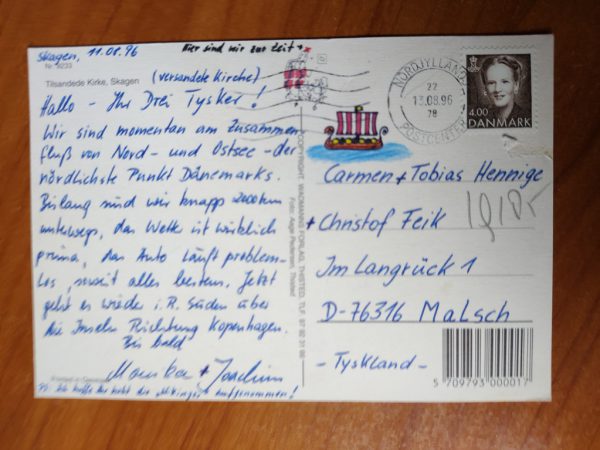 Skagen, 11.08.96
Hier sind wir zur Zeit
Nr. 9233
Tilsandede Kirke, Skagen
(versandete Kirche)
Hallo - Ihr Drei Tysker!
Wir sind momentan am Zusammen
fluß von Nord- und Ostsee - der
nördlichste Punkt Dänemarks.
Bislang sind wir knapp 2000 km
unterwegs, das Wetter ist wirklich
prima, das Auto läuft problem-
los, soweit alles bestens. Jetzt
geht es wieder i. R. Süden über
die Inseln Richtung Kopenhagen.
Bis bald
Monika + Joachim
PS. Ich hoffe Ihr habt die "Wikinger" aufgenommen!
Printed in Denmark
COPYRIGHT: WADMANNS FORLAG, THISTED, TLF. 97 92 31 96
Foto: Aage Pedersen, Thisted
NORDJYLLANDS
22
13.08.96
78
POSTCENTER
4.00
DANMARK
Carmen + Tobias Hennige
+ Christof Feik
Im Langrück 1
D-76316 Malsch
- Tyskland -
5 709793 000017